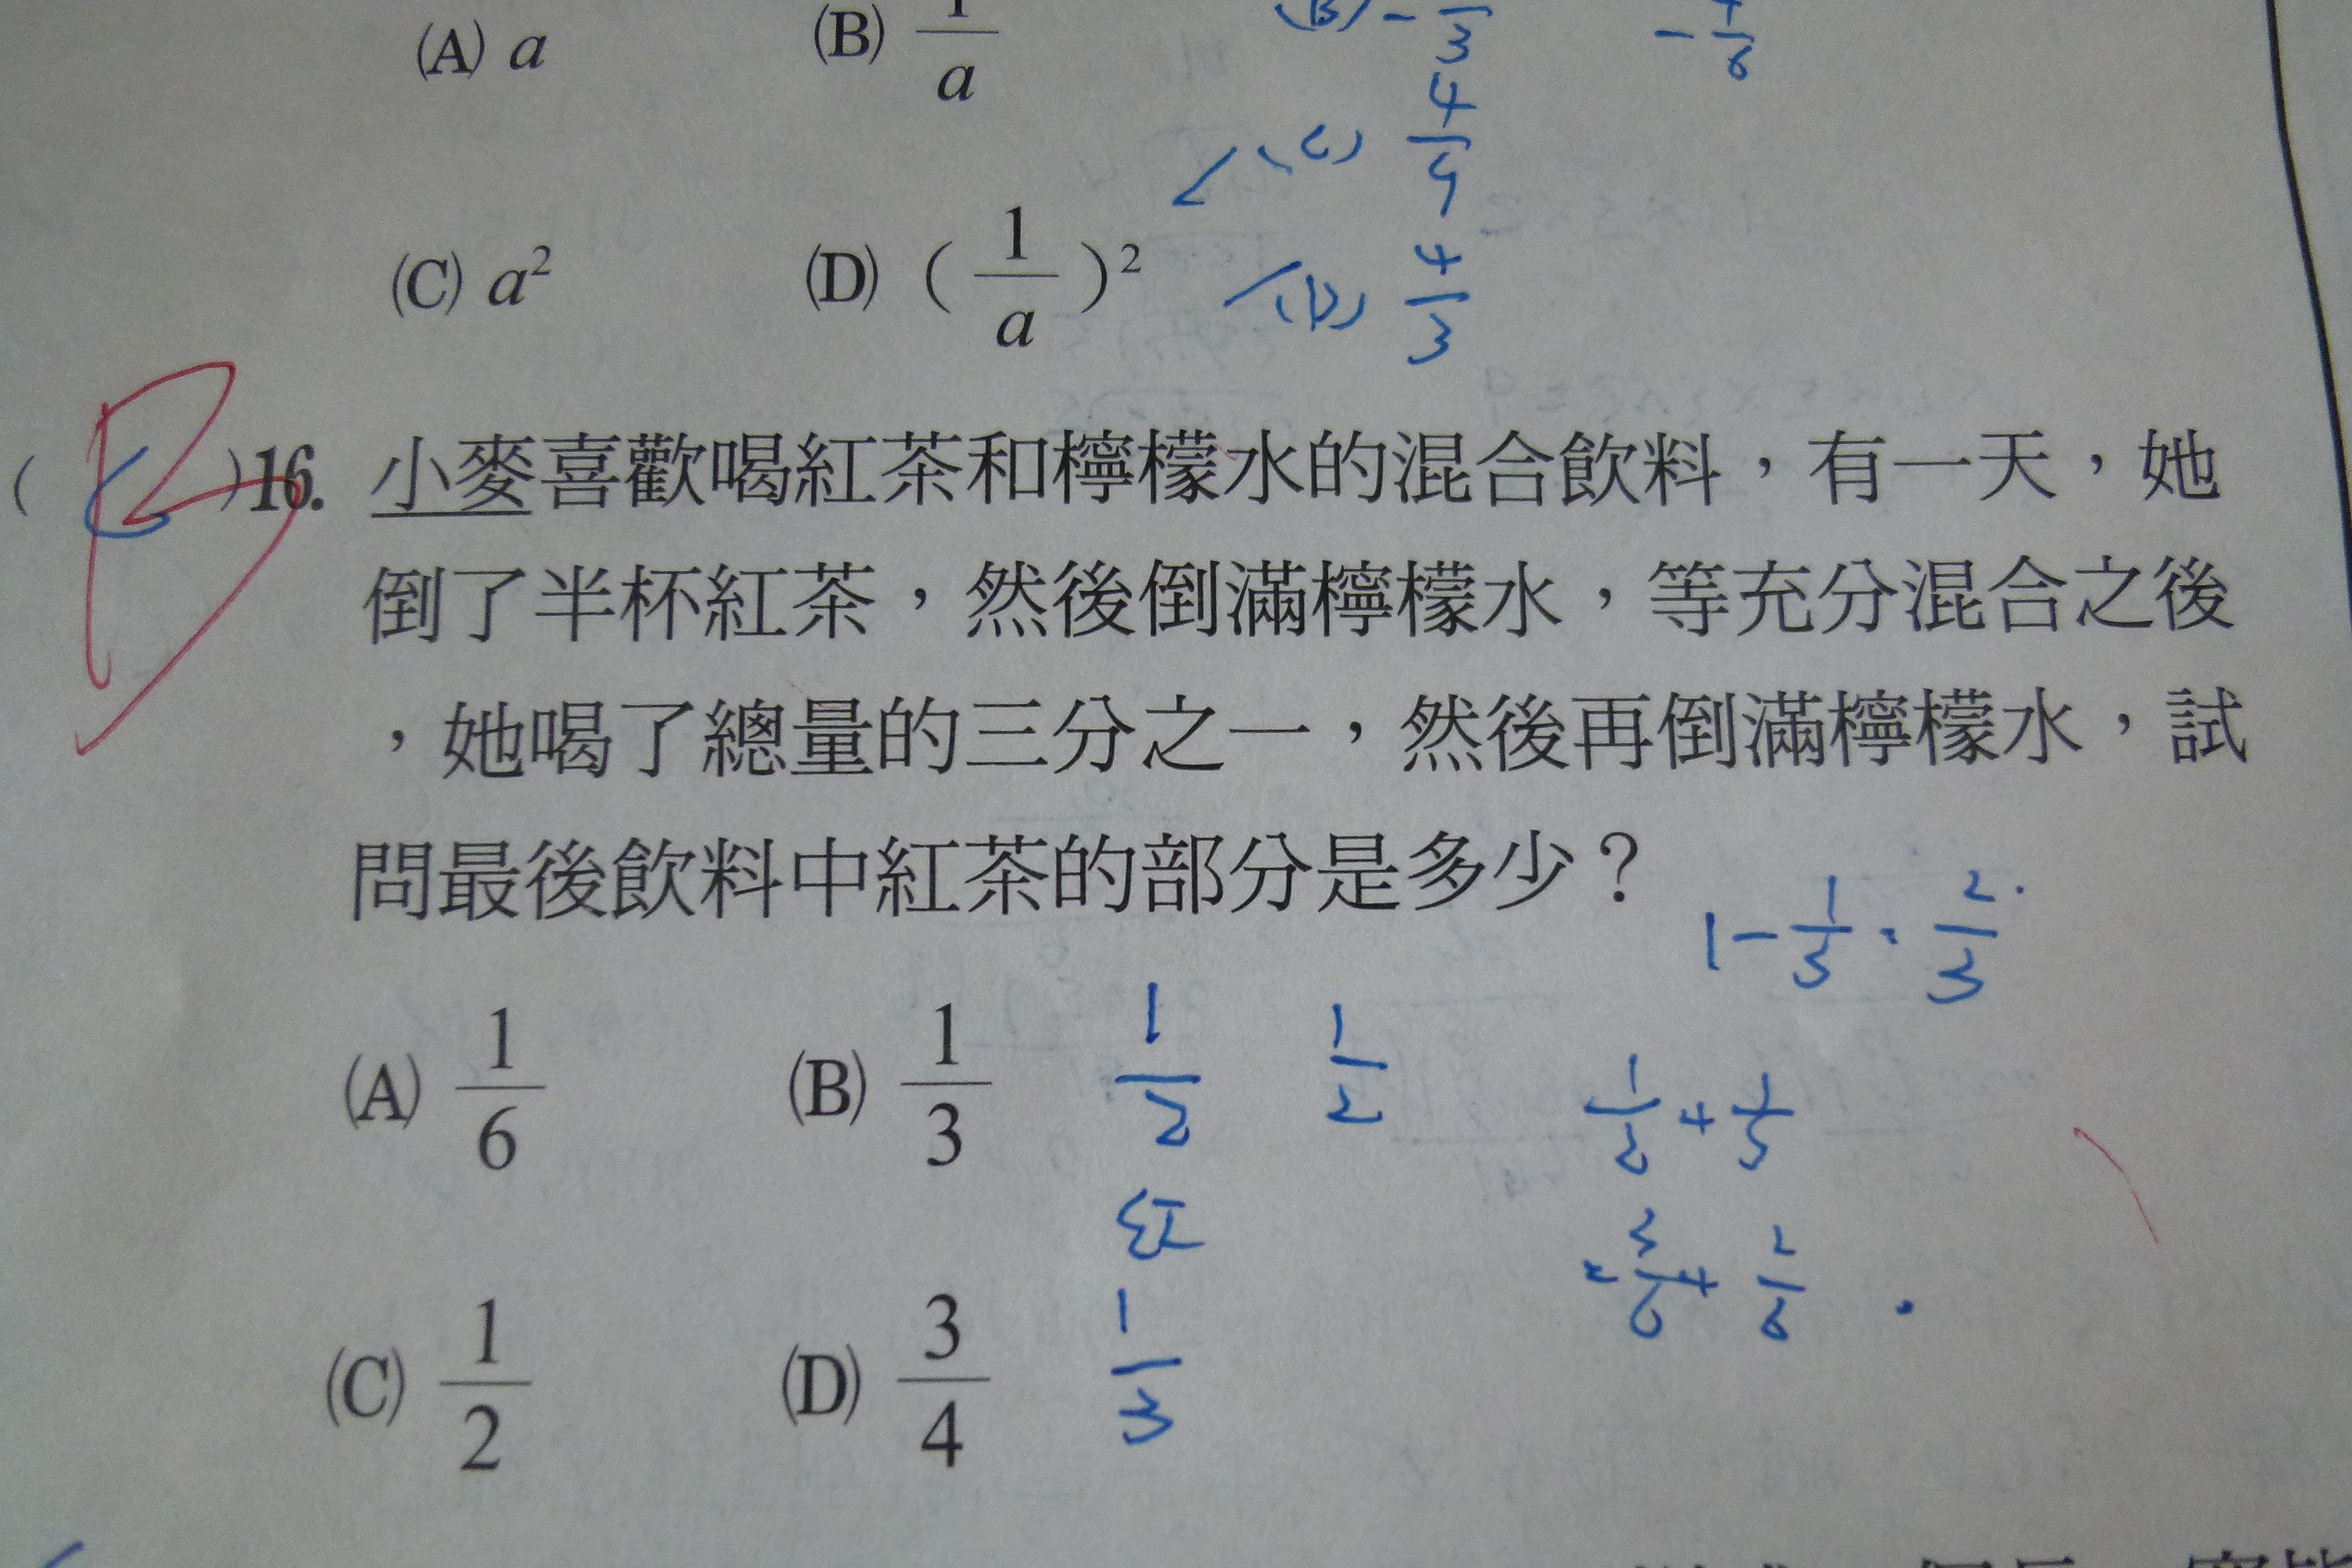 (A) a (B) 1/a (B) - /3
(C) 4/9
(C) a² (D) (1/a)² (D) 4/3
( C )16. 小麥喜歡喝紅茶和檸檬水的混合飲料，有一天，她
倒了半杯紅茶，然後倒滿檸檬水，等充分混合之後
，她喝了總量的三分之一，然後再倒滿檸檬水，試
問最後飲料中紅茶的部分是多少？
1 - 1/3 = 2/3
(A) 1/6 (B) 1/3 1/2 1/2 1/2 + 1/3
紅 = 3/6 + 2/6
(C) 1/2 (D) 3/4 1/3